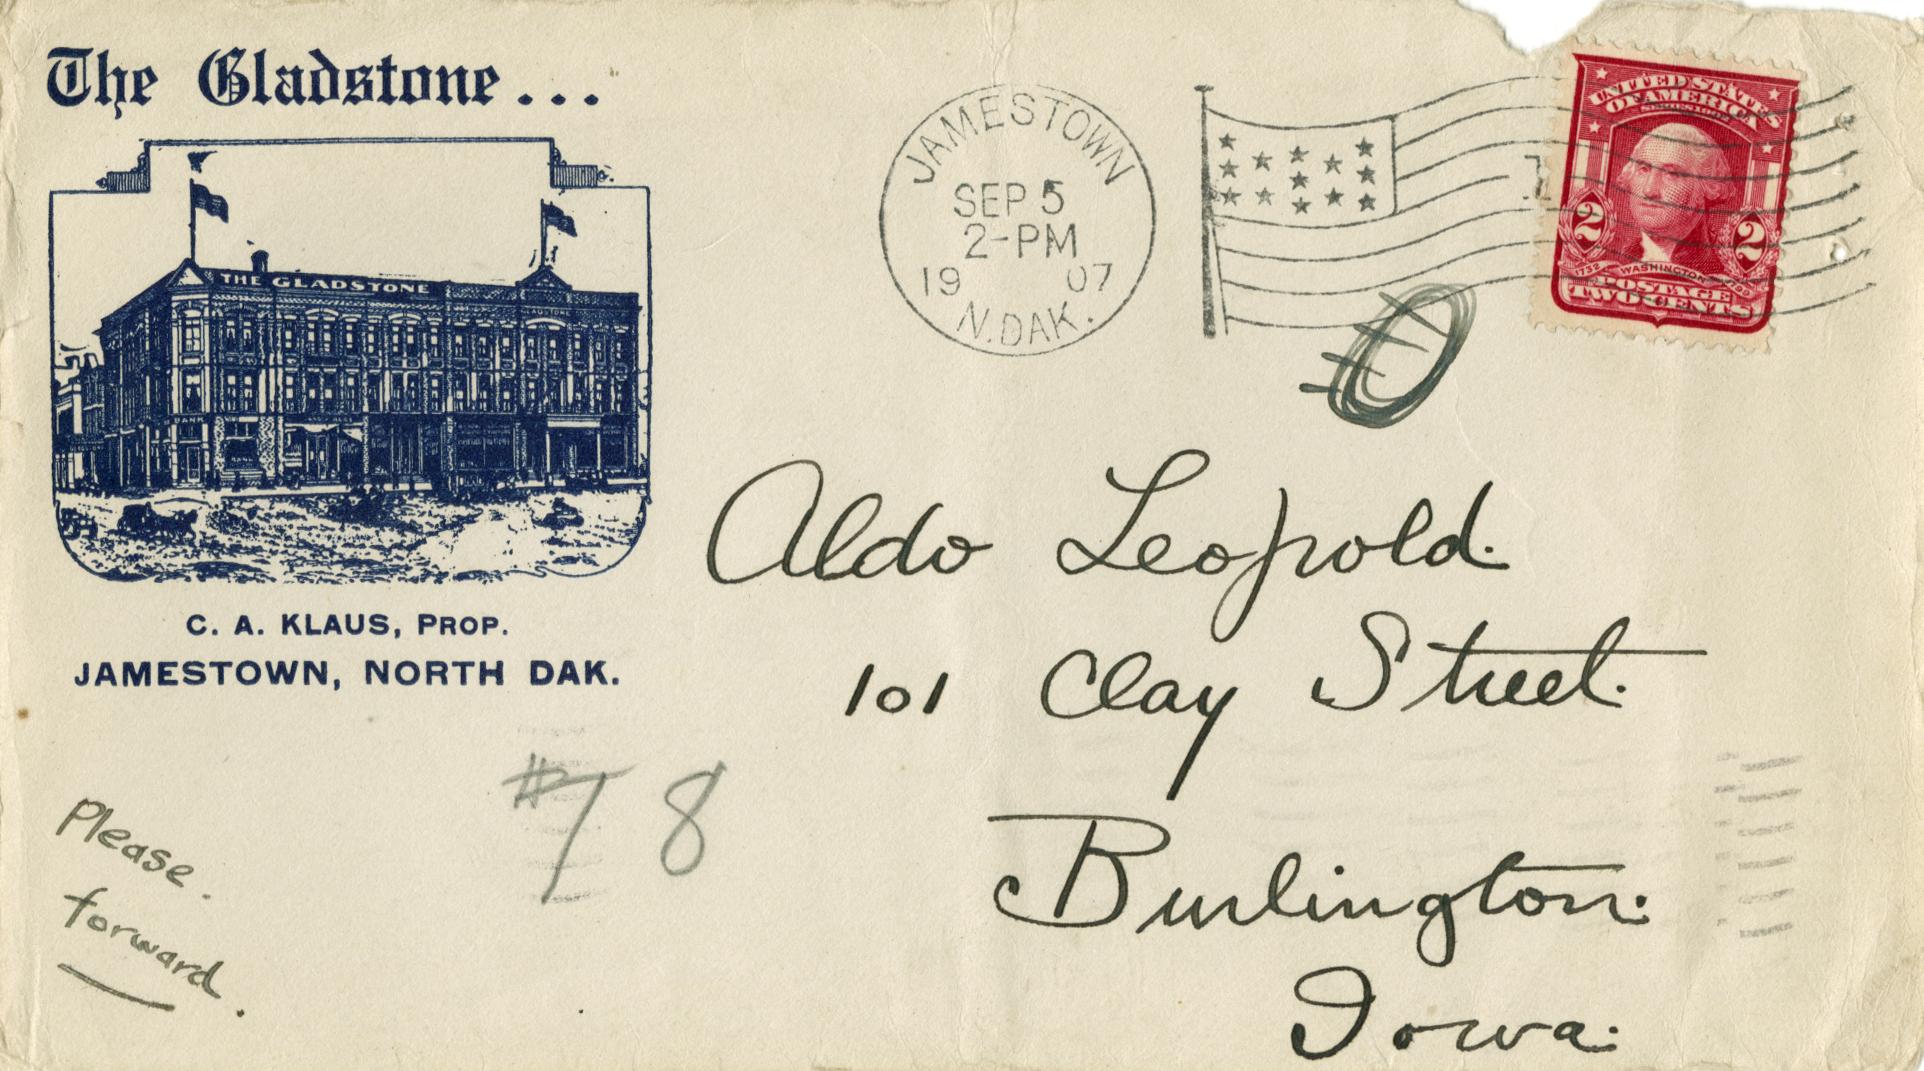 The Gladstone...
THE GLADSTONE
BANK
C. A. KLAUS, PROP.
JAMESTOWN, NORTH DAK.
JAMESTOWN
SEP 5
2-PM
19 07
N. DAK.
1
UNITED STATES
OF AMERICA
2 2
1732 WASHINGTON 1799
POSTAGE
TWO CENTS
Aldo Leopold.
101 Clay Street.
Burlington.
Iowa.
#78
Please.
forward.